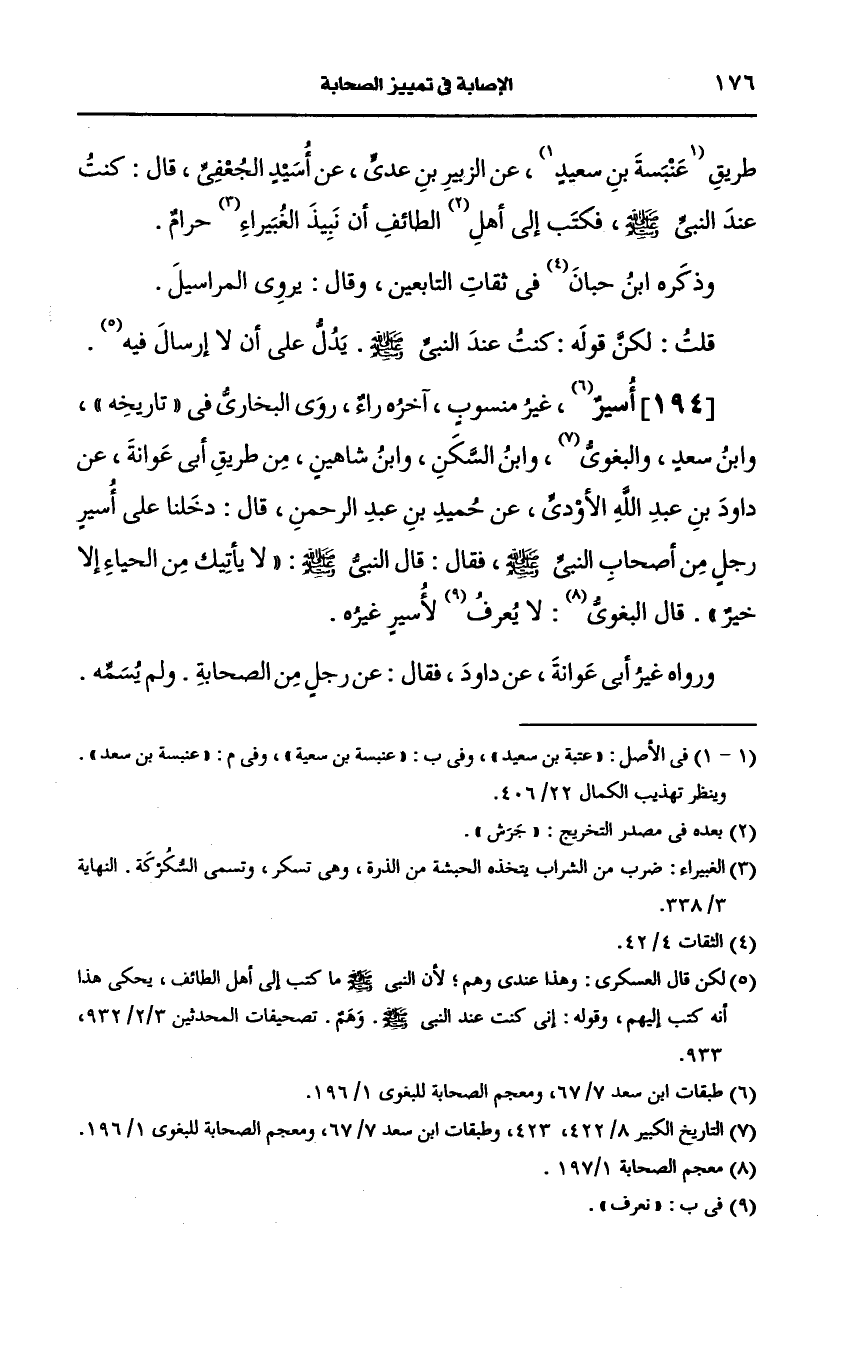 ١٧٦ الإصابة فى تمييز الصحابة
طريقِ (١عَنْبَسةَ بنِ سعيدٍ١) ، عن الزبيرِ بنِ عدىٍّ ، عن أُسَيْدٍ الجُعْفِىِّ ، قال : كنتُ
عندَ النبىِّ ﷺ ، فكتَب إلى أهلِ(٢) الطائفِ أن نَبِيذَ الغُبَيراءِ(٣) حرامٌ .
وذكَره ابنُ حبانَ(٤) فى ثقاتِ التابعين ، وقال : يروِى المراسيلَ .
قلتُ : لكنَّ قولَه : كنتُ عندَ النبىِّ ﷺ . يَدُلُّ على أن لا إرسالَ فيه(٥) .
[١٩٤] أُسيرٌ(٦) ، غيرُ منسوبٍ ، آخرُه راءٌ ، روَى البخارىُّ فى « تاريخِه » ،
وابنُ سعدٍ ، والبغوىُّ(٧) ، وابنُ السَّكَنِ ، وابنُ شاهينٍ ، مِن طريقِ أبى عَوانةَ ، عن
داودَ بنِ عبدِ اللَّهِ الأَوْدىِّ ، عن حُميدِ بنِ عبدِ الرحمنِ ، قال : دخَلنا على أُسيرٍ
رجلٍ مِن أصحابِ النبىِّ ﷺ ، فقال : قال النبىُّ ﷺ : « لا يأتِيك مِن الحياءِ إلا
خيرٌ » . قال البغوىُّ(٨) : لا يُعرفُ(٩) لأُسيرٍ غيرُه .
ورواه غيرُ أبى عَوانةَ ، عن داودَ ، فقال : عن رجلٍ مِن الصحابةِ . ولم يُسَمِّه .
(١ - ١) فى الأصل : « عتبة بن سعيد » ، وفى ب : « عنبسة بن سعية » ، وفى م : « عنبسة بن سعد » .
وينظر تهذيب الكمال ٢٢/ ٤٠٦.
(٢) بعده فى مصدر التخريج : « جَرَش » .
(٣) الغبيراء : ضرب من الشراب يتخذه الحبشة من الذرة ، وهى تسكر ، وتسمى السُّكُرْكَة . النهاية
٣/ ٣٣٨.
(٤) الثقات ٤/ ٤٢.
(٥) لكن قال العسكرى : وهذا عندى وهم ؛ لأن النبى ﷺ ما كتب إلى أهل الطائف ، يحكى هذا
أنه كتب إليهم ، وقوله : إنى كنت عند النبى ﷺ . وَهَمٌ . تصحيفات المحدثين ٣/ ٢/ ٩٣٢،
٩٣٣.
(٦) طبقات ابن سعد ٧/ ٦٧، ومعجم الصحابة للبغوى ١/ ١٩٦.
(٧) التاريخ الكبير ٨/ ٤٢٢، ٤٢٣، وطبقات ابن سعد ٧/ ٦٧، ومعجم الصحابة للبغوى ١/ ١٩٦.
(٨) معجم الصحابة ١/ ١٩٧ .
(٩) فى ب : « نعرف » .